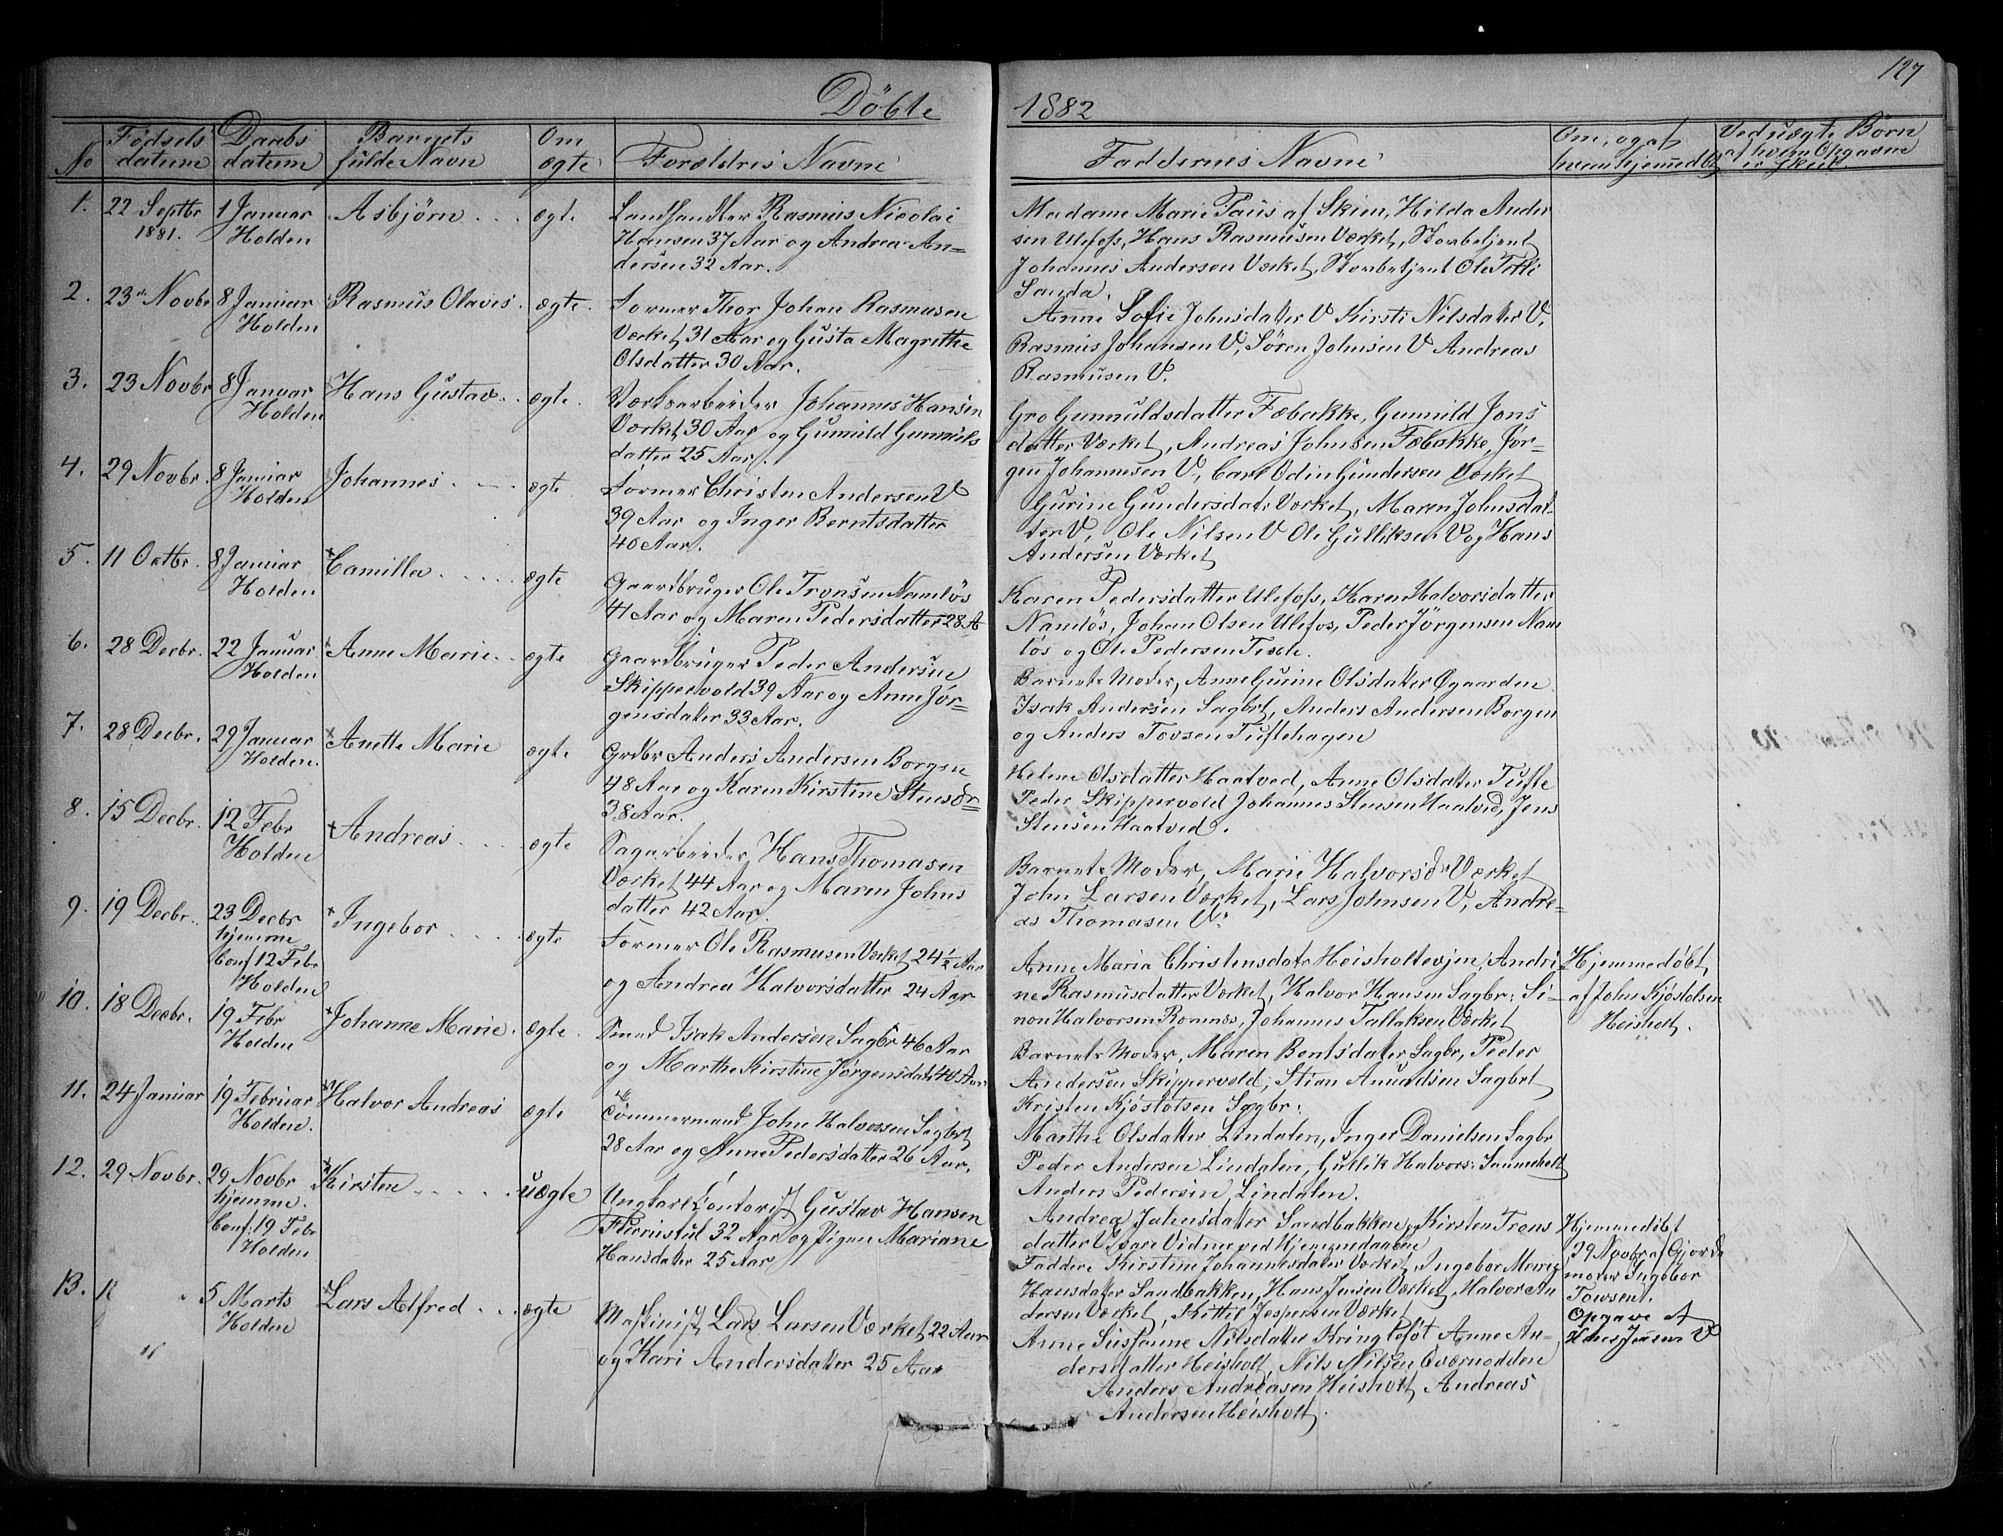 127
Döbte 1882
No
Fødsels datum
Daabs datum
Barnets fulde Navn
Om ægte
Forældres Navne
Faddernes Navne
Om, og af hvem hjemmedøbt
Ved uægte Børn af hvem Opgaven er skeet
1.
22 Septbr 1881.
1 Januar Holden
Asbjørn
ægte
Landhandler Rasmus Nicolai
Hansen 37 Aar og Andrea An=
dersen 32 Aar.
Madame Marie Paus af Skien, Hilda Ander
sen Ulefoss, Hans Rasmusen Værket,
Johannes Andersen Værket, Ole
Sanda.
2.
23 Novbr
8 Januar Holden
Rasmus Olaves
ægte
Former Thor Johan Rasmusen
Værket 31 Aar og Gusta Magrethe
Olsdatter 30 Aar.
Anne Sofie Johnsdatter V Kirsti Nilsdater V,
Rasmus Johansen V, Søren Johnsen V Andreas
Rasmusen V.
3.
23 Novbr
8 Januar Holden
Hans Gustav
ægte
Værksarbeider Johannes Hansen
Værket 30 Aar og Gunnild Gunnuls
datter 25 Aar.
Gro Gunnuldsdatter Fæbakke, Gunnild Jons
datter Værket, Andreas Johnsen Fæbakke, Jør-
gen Johannesen V, Carl Odin Gundersen Værket
4.
29 Novbr
8 Januar Holden
Johannes
ægte
Former Christen Andersen V
39 Aar og Inger Berntsdatter
40 Aar.
Gurine Gundersdatr Værket, Maren Johnsdat-
ter V, Ole Nilsen V Ole Gulliksen V og Hans
Andersen Værket
5.
11 Octbr.
8 Januar Holden
Camilla
ægte
Gaardbruger Ole Tronsen Namløs
41 Aar og Maren Pedersdatter 28 A
Karen Pedersdatter Ulefoss, Karen Halvorsdatter
Namløs, Johan Olsen Ulefos, Peder Jörgensen Nam
løs og Ole Pedersen
6.
28 Decbr.
22 Januar Holden
Anne Marie
ægte
Gaardbruger Peder Andersen
Skippervold 39 Aar og Anne Jör=
gensdater 33 Aar.
Barnets Moder, Anne Gurine Olsdater Øgaarden
Isak Andersen Sagbrt, Anders Andersen Borgen
og Anders Tovsen Tuftehagen
7.
28 Decbr.
29 Januar Holden.
Anette Marie
ægte
Grdbr Anders Andersen Borgen
48 Aar og Karen Kirstine Stensdr=
38 Aar.
Helene Olsdatter Haatved, Anne Olsdater Tufte
Peder Skippervold Johannes Stensen Haatved, Jens
Stensen Haatved.
8.
15 Decbr.
12 Febr Holden
Andreas
ægte
Sagarbeider Hans Thomasen
Værket 44 Aar og Maren Johns
datter 42 Aar.
Barnets Moder, Marie Halvorsdr Værket
John Larsen Værket, Lars Johnsen V, Andre-
as Thomasen V.
9.
19 Decbr.
23 Decbr hjemme Conf 12 Febr Holden
Ingebor
ægte
Former Ole Rasmusen Værket 24 1/2 Aar
og Andrea Halvorsdatter 24 Aar
Anne Maria Christensdatr Heisholteien, Andri
ne Rasmusdatter Værket, Halvor Hansen Sagbr: Si-
mon Halvorsen Romnes, Johannes Tallaksen Værket
Hjemmedøbt, af John Kjöstolsen Heisholt.
10.
18 Decbr.
19 Febr Holden
Johanne Marie
ægte
Smed Isak Andersen Sagbr 46 Aar
og Marthe Kirstine Jørgensdatr 40 Aar
Barnets Moder, Maren Bentsdater Sagbr, Peder
Andersen Skippervold, Stian Amundsen Sagbrt
Kristen Kjöstolsen Sagbr:
11.
24 Januar
19 Februar Holden.
Halvor Andreas
ægte
Tömmermand John Halvorsen Sagbrt
28 Aar og Anne Pedersdatter 26 Aar.
Marthe Olsdatter Lindalen, Inger Danielsen Sagbr
Peder Andersen Lindalen, Gullik Halvors:
Anders Pedersen Lindalen.
12.
29 Novbr.
29 Novbr hjemme. Conf: 19 Febr Holden
Kirsten
uægte
Ungkarl Contorist Gustav Hansen
32 Aar og Pigen Mariane
Hansdater 25 Aar
Andrea Jahnsdatter Sandbakken og Kirsten Trons
datter V, vare Vidne ved Hjemmedaaben
Faddere Kirstine Johannesdater Værket, Ingebor Marie
Hansdater Sandbakken, Hans Jensen Værket, Halvor An
dersen Værket, Kittil Jespersen Værket
Hjemmedöbt
29 Novbr af Gjorde
moder Ingebor
Towsen.
Opgave af
Hans Jensen V
13.
5 Marts Holden
Lars Alfred
ægte
Maskinist Lars Larsen Værket 22 Aar
og Kari Andersdater 25 Aar
Anne Susanne Nilsdater Kringlefot Anne An-
dersdatter Heisholt, Nils Nilsen Qværnodden
Anders Andreasen Heisholt, Andreas
Andersen Heisholt.